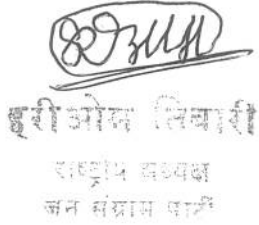 हरीओम तिवारी
राष्ट्रीय अध्यक्ष
जन संग्राम पार्टी